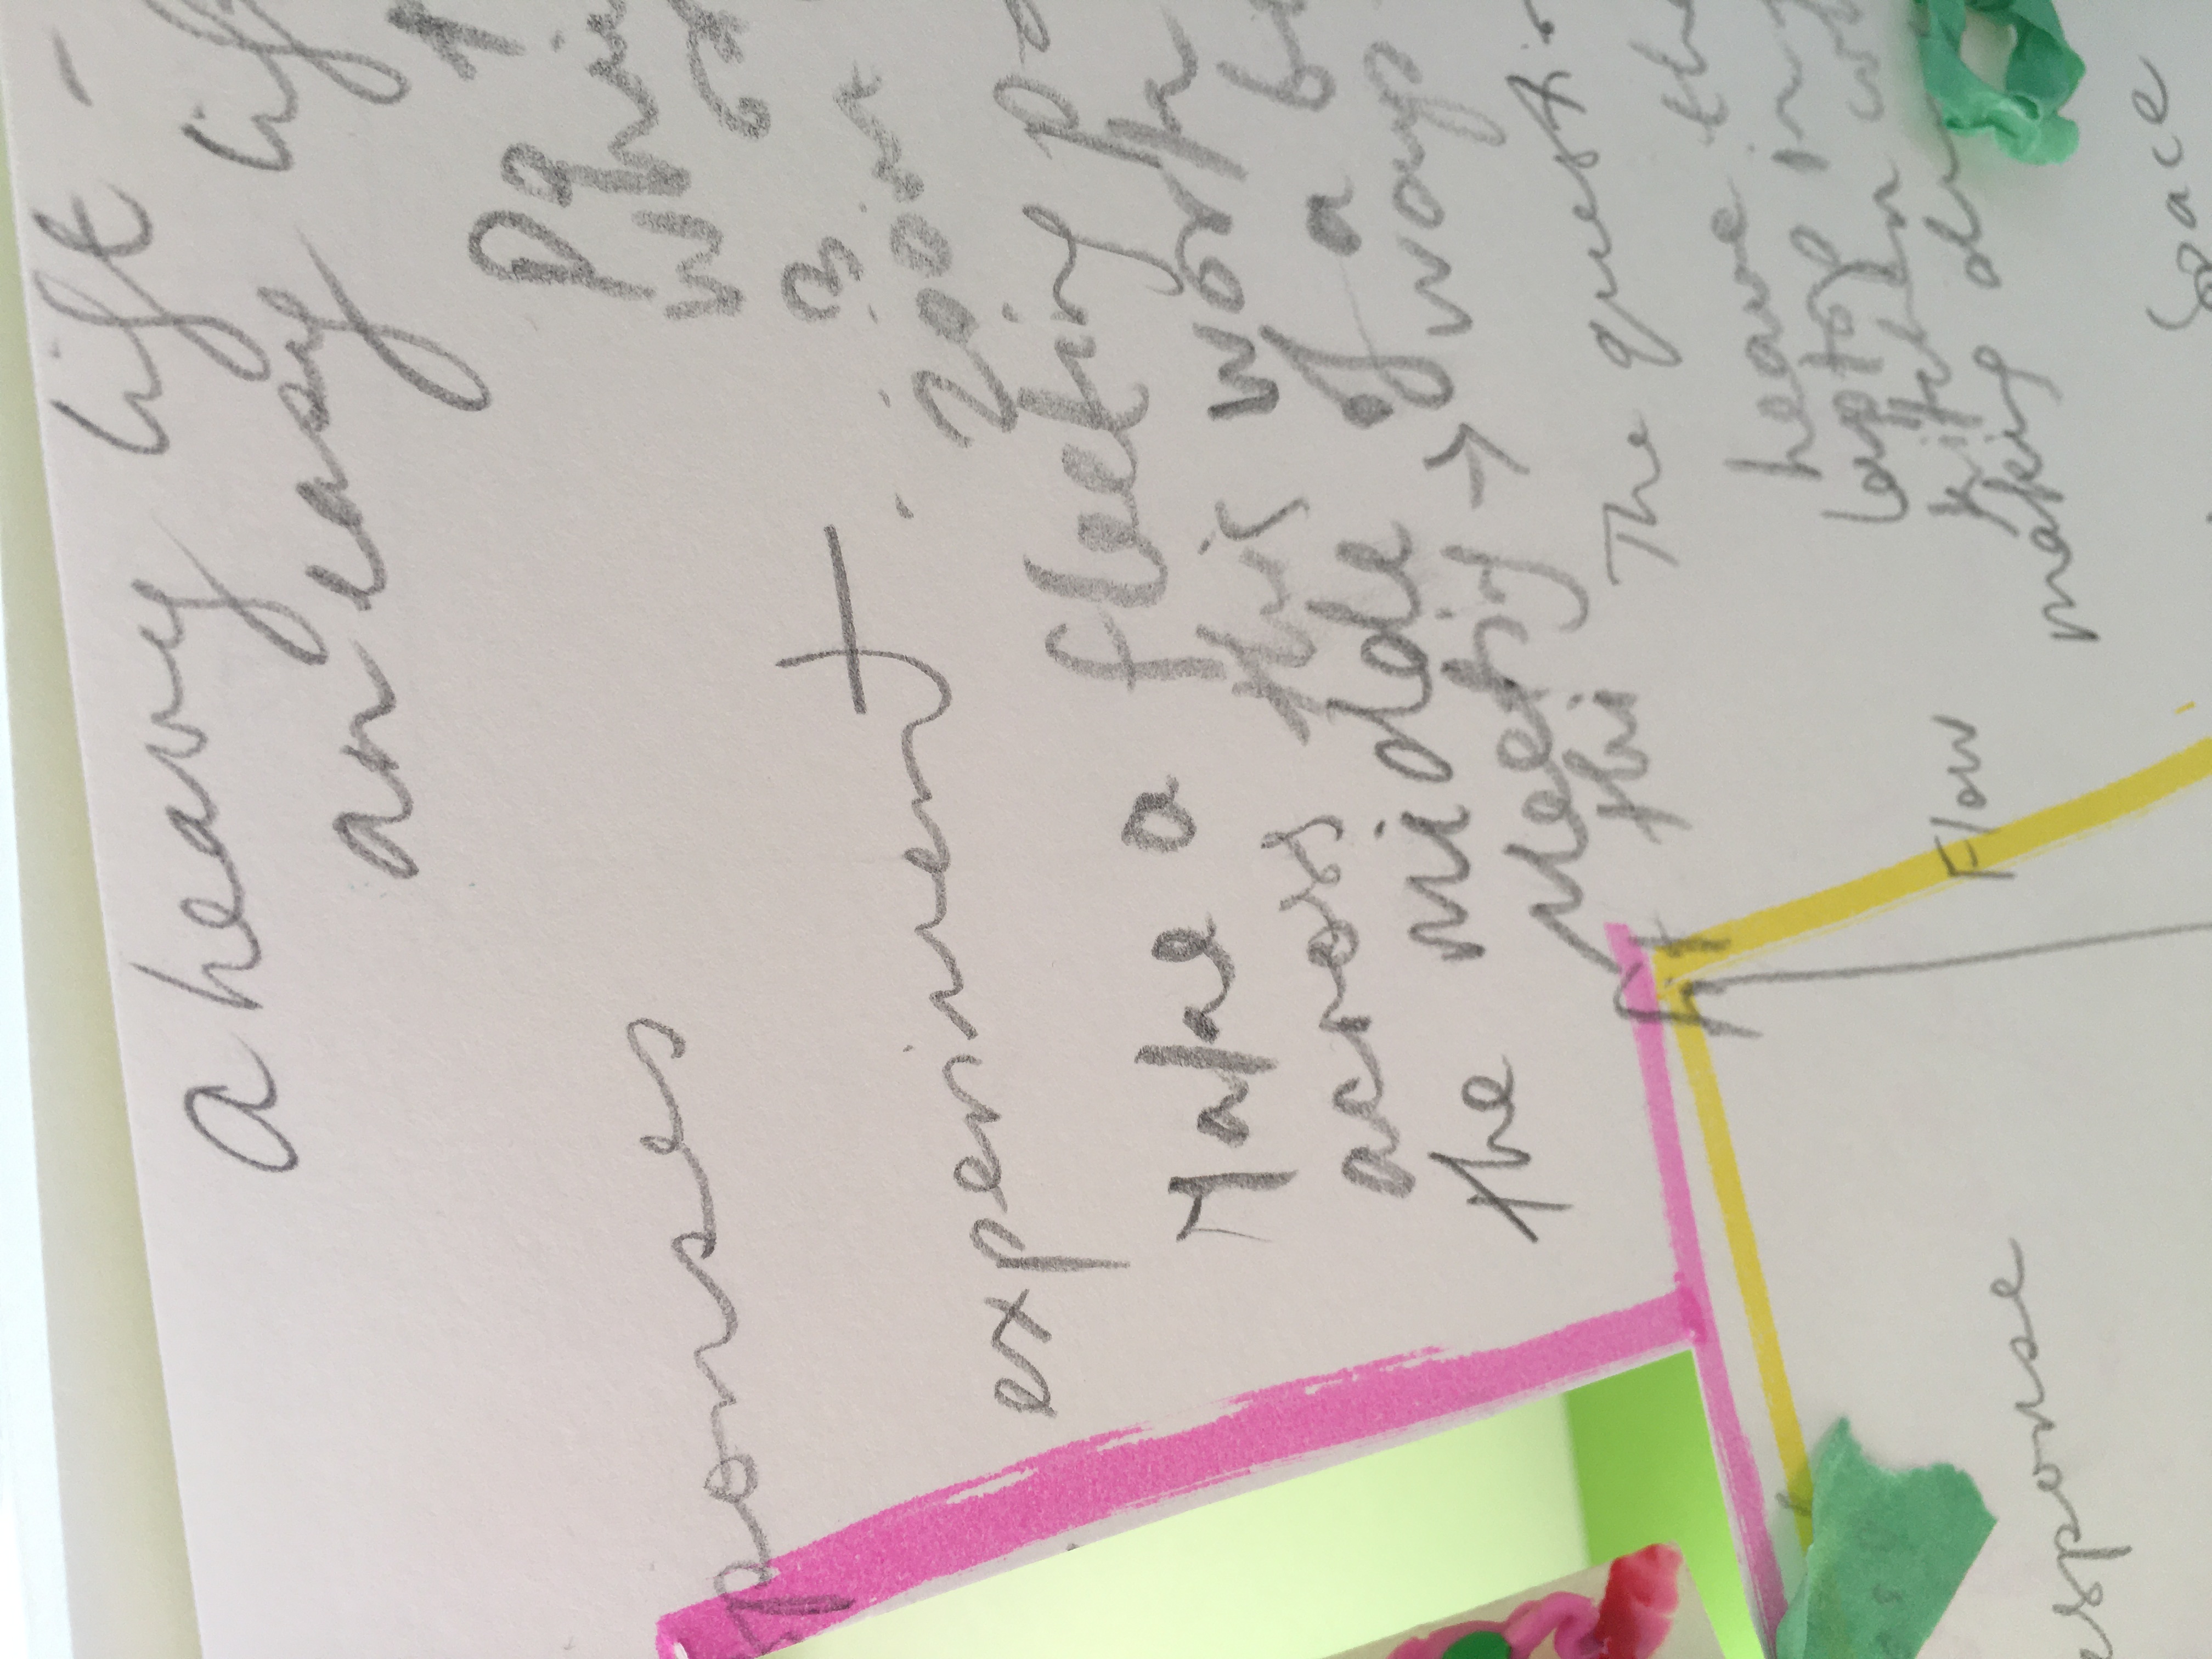 a heavy lift -
an easy lif
ponses
experiment.
200m
Take a fleeting pa
across this work
the middle of a
Meeting → ways
thi
The questio
heave the
laptop in
kitchen
making
Flow
esponse
Space